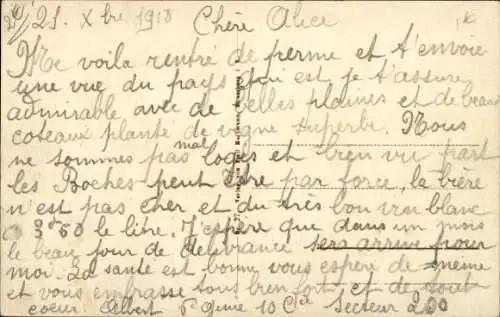 21/21. Xbre 1918 Chère Alice
Me voila rentré de perme et t'envoie
une vue du pays qui est je t'assure
admirable avec de belles plaines et de beau
coteaux planté de vigne superbe. Nous
ne sommes pas mal logés et bien vu part
les Boches peut être par force, la bière
n'est pas cher et du très bon vin blanc
à 3f50 le litre. J'espère que dans un mois
le beau jour de délivrance sera arrivé pour
moi. La santé est bonne vous espère de même
et vous embrasse tous bien fort et de tout
coeur. Albert 10 Cie Secteur 200